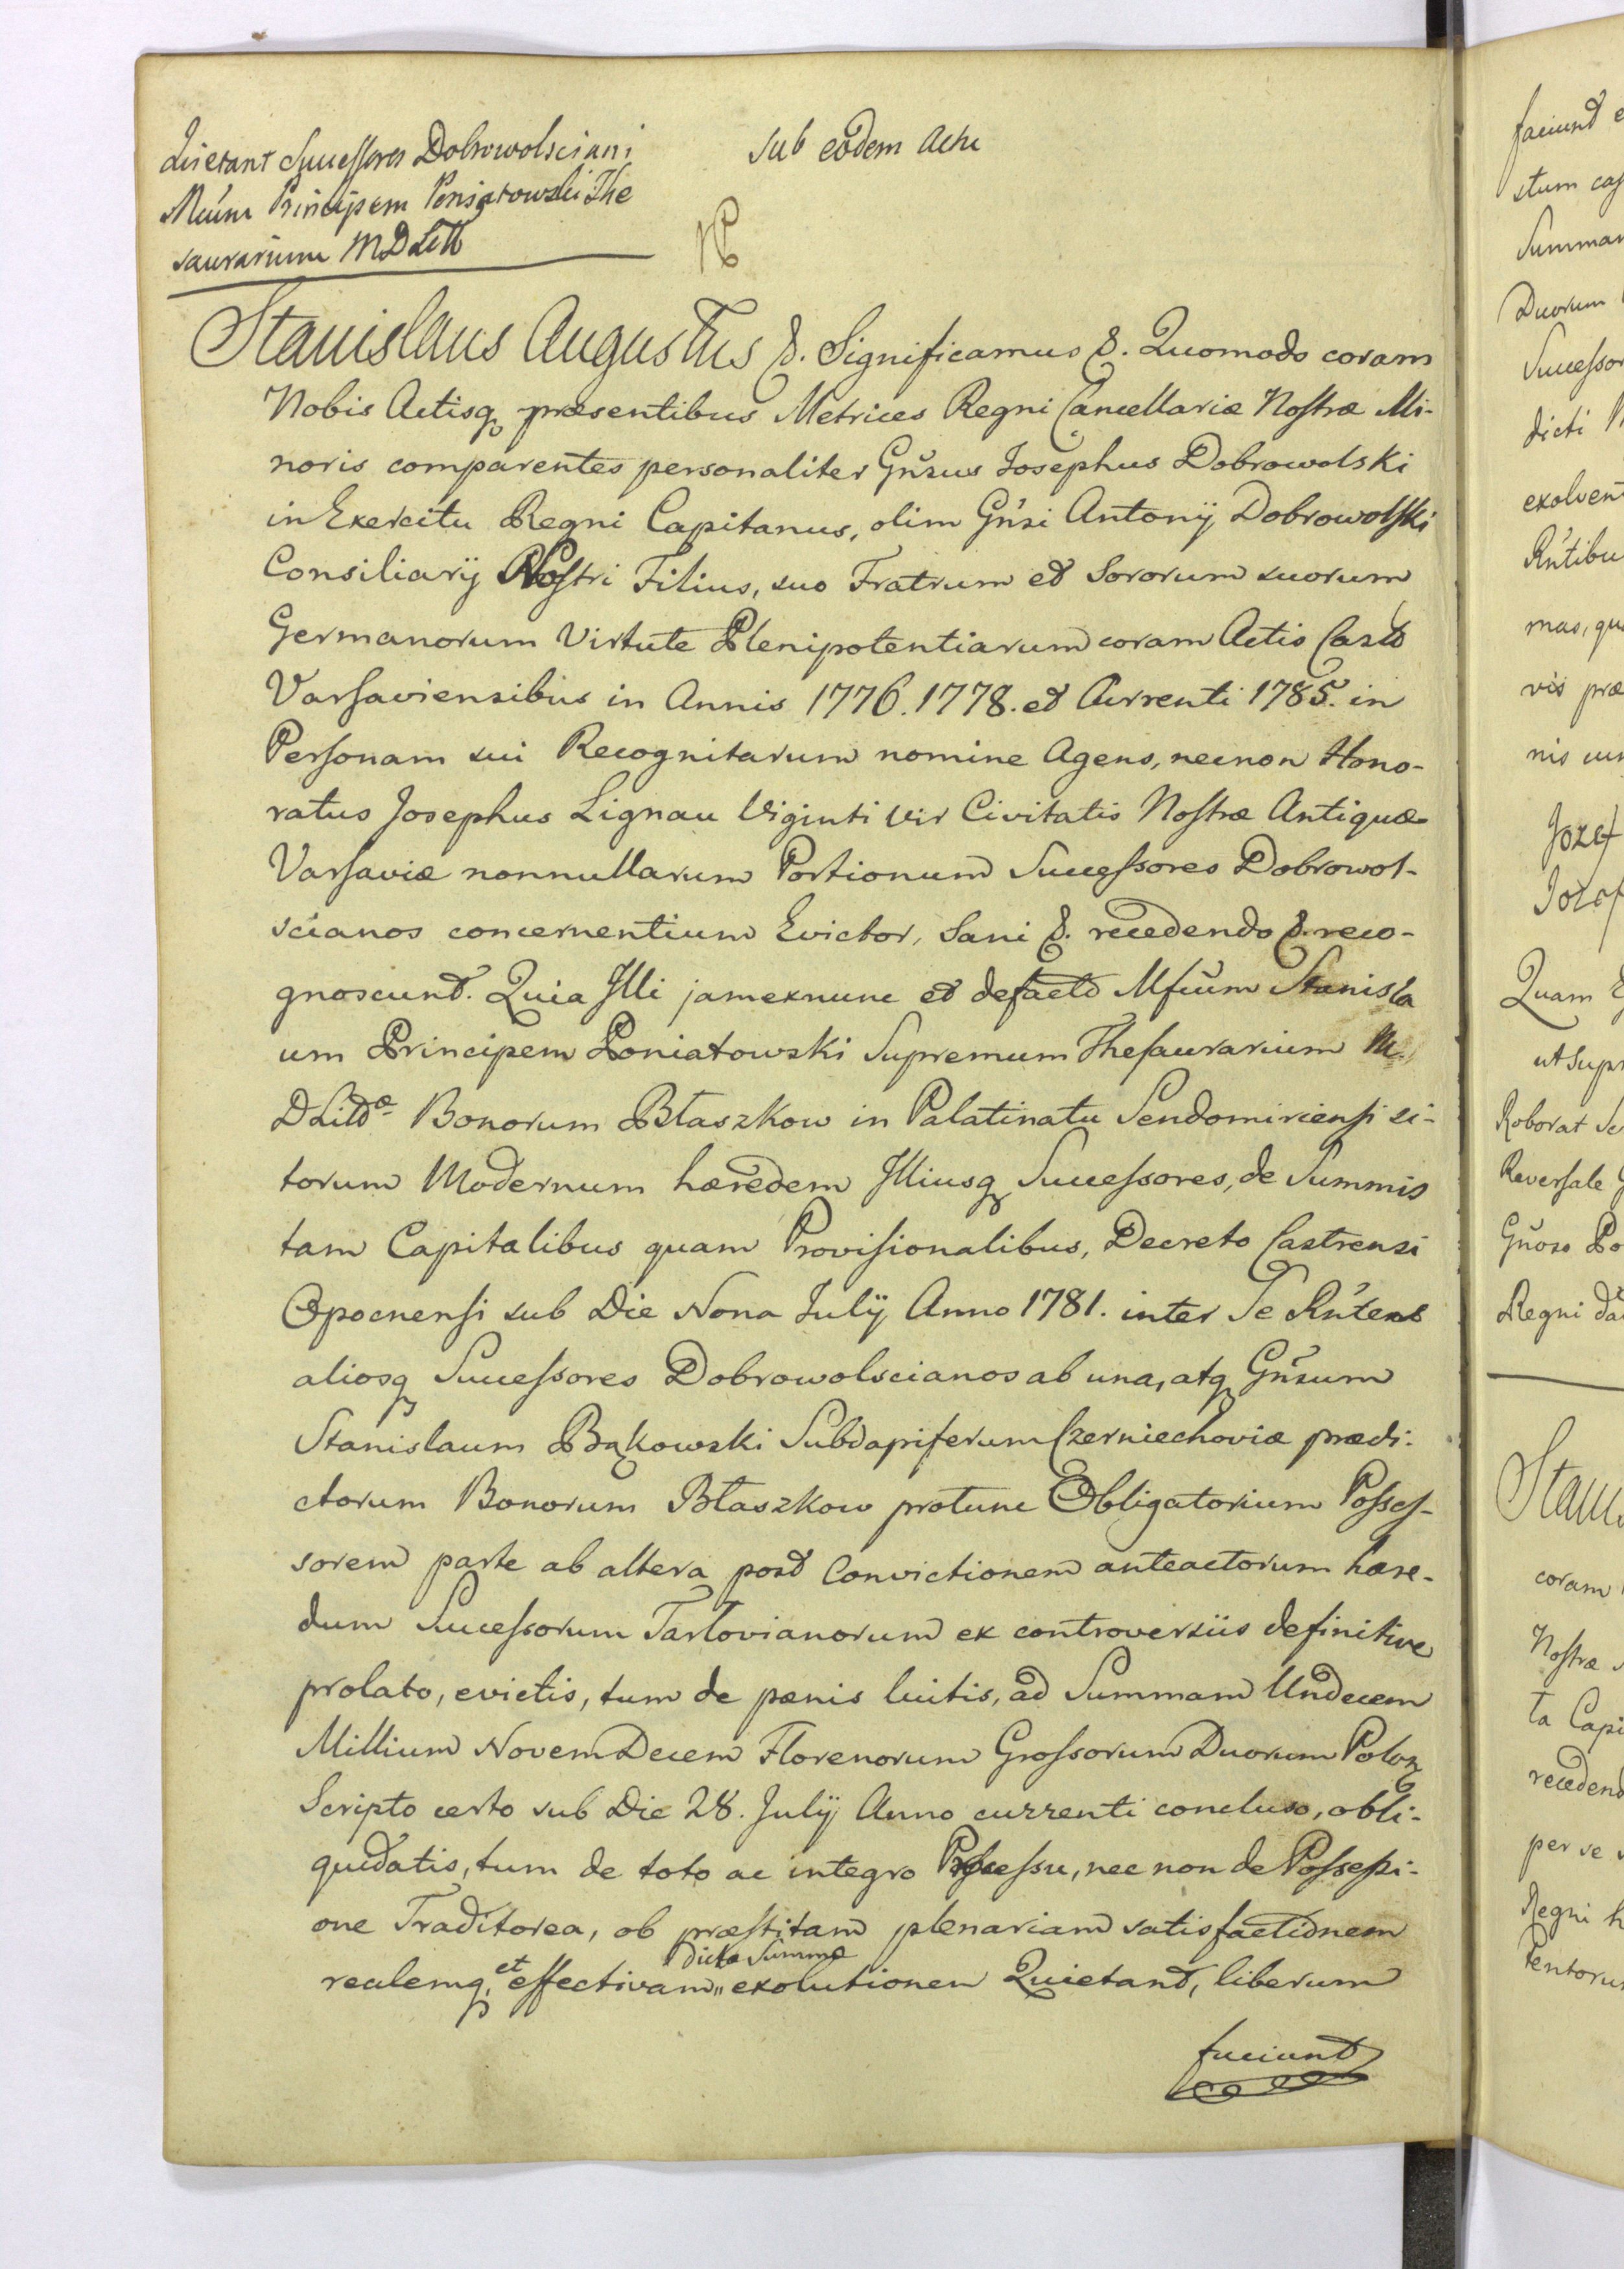 Quietant Successores Dobrowolsciani
Mcum Principem Poniatowski The
saurarium MDLitt
sub eodem Actu
Stanislaus Augustus &. Significamus &. Quomodo coram
Nobis Actisq præsentibus Metrices Regni Cancellariæ Nostræ Mi-
noris comparentes personaliter Gnsus Josephus Dobrowolski
in Exercitu Regni Capitanus, olim Gnsi Antonij Dobrowolski
Consiliarij Nostri Filius, suo Fratrum et Sororum suorum
Germanorum Virtute Plenipotentiarum coram Actis Castr
Varsaviensibus in Annis 1776. 1778. et Currenti 1785. in
Personam sui Recognitarum nomine Agens, necnon Hono-
ratus Josephus Lignau Viginti Vir Civitatis Nostræ Antiquæ
Varsaviæ nonnullarum Portionum Successores Dobrowol-
scianos concernentium Evictor, Sani &. recedendo &. reco-
gnoscunt. Quia Illi jamexnunc et defacto Mfcum Stanisla
um Principem Poniatowski Supremum Thesaurarium M.
DLitæ Bonorum Błaszkow in Palatinatu Sendomiriensi si-
torum Modernum hæredem Illiusq Successores, de Summis
tam Capitalibus quam Provisionalibus, Decreto Castrensi
Opocnensi sub Die Nona Julij Anno 1781. inter Se Rntens
aliosq Successores Dobrowolscianos ab una, atq Gnsum
Stanislaum Bąkowski Subdapiferum Czerniechoviæ prædi-
ctorum Bonorum Błaszkow protunc Obligatorium Posses-
sorem parte ab altera post Convictionem anteactorum hære-
dum Successorum Tarlovianorum ex controversiis definitive
prolato, evictis, tum de pænis luitis, ad Summam Undecem
Millium Novem Decem Florenorum Grossorum Duorum Polon
Scripto certo sub Die 28. Julij Anno currenti concluso, obli-
quidatis, tum de toto ac integro Processu, nec non de Possessi-
one Traditorea, ob præstitam plenariam satisfactionem
dictæ Summæ
realemq, et effectivam,, exolutionen Quietant, liberum
faciunt
faciunt
stum
Duorum
dicti
mas,
nis
Jozef
Quam
Roborat
Reversale
Gnoso
Regni
coram
Nostræ
ta Capi
per se
Regni